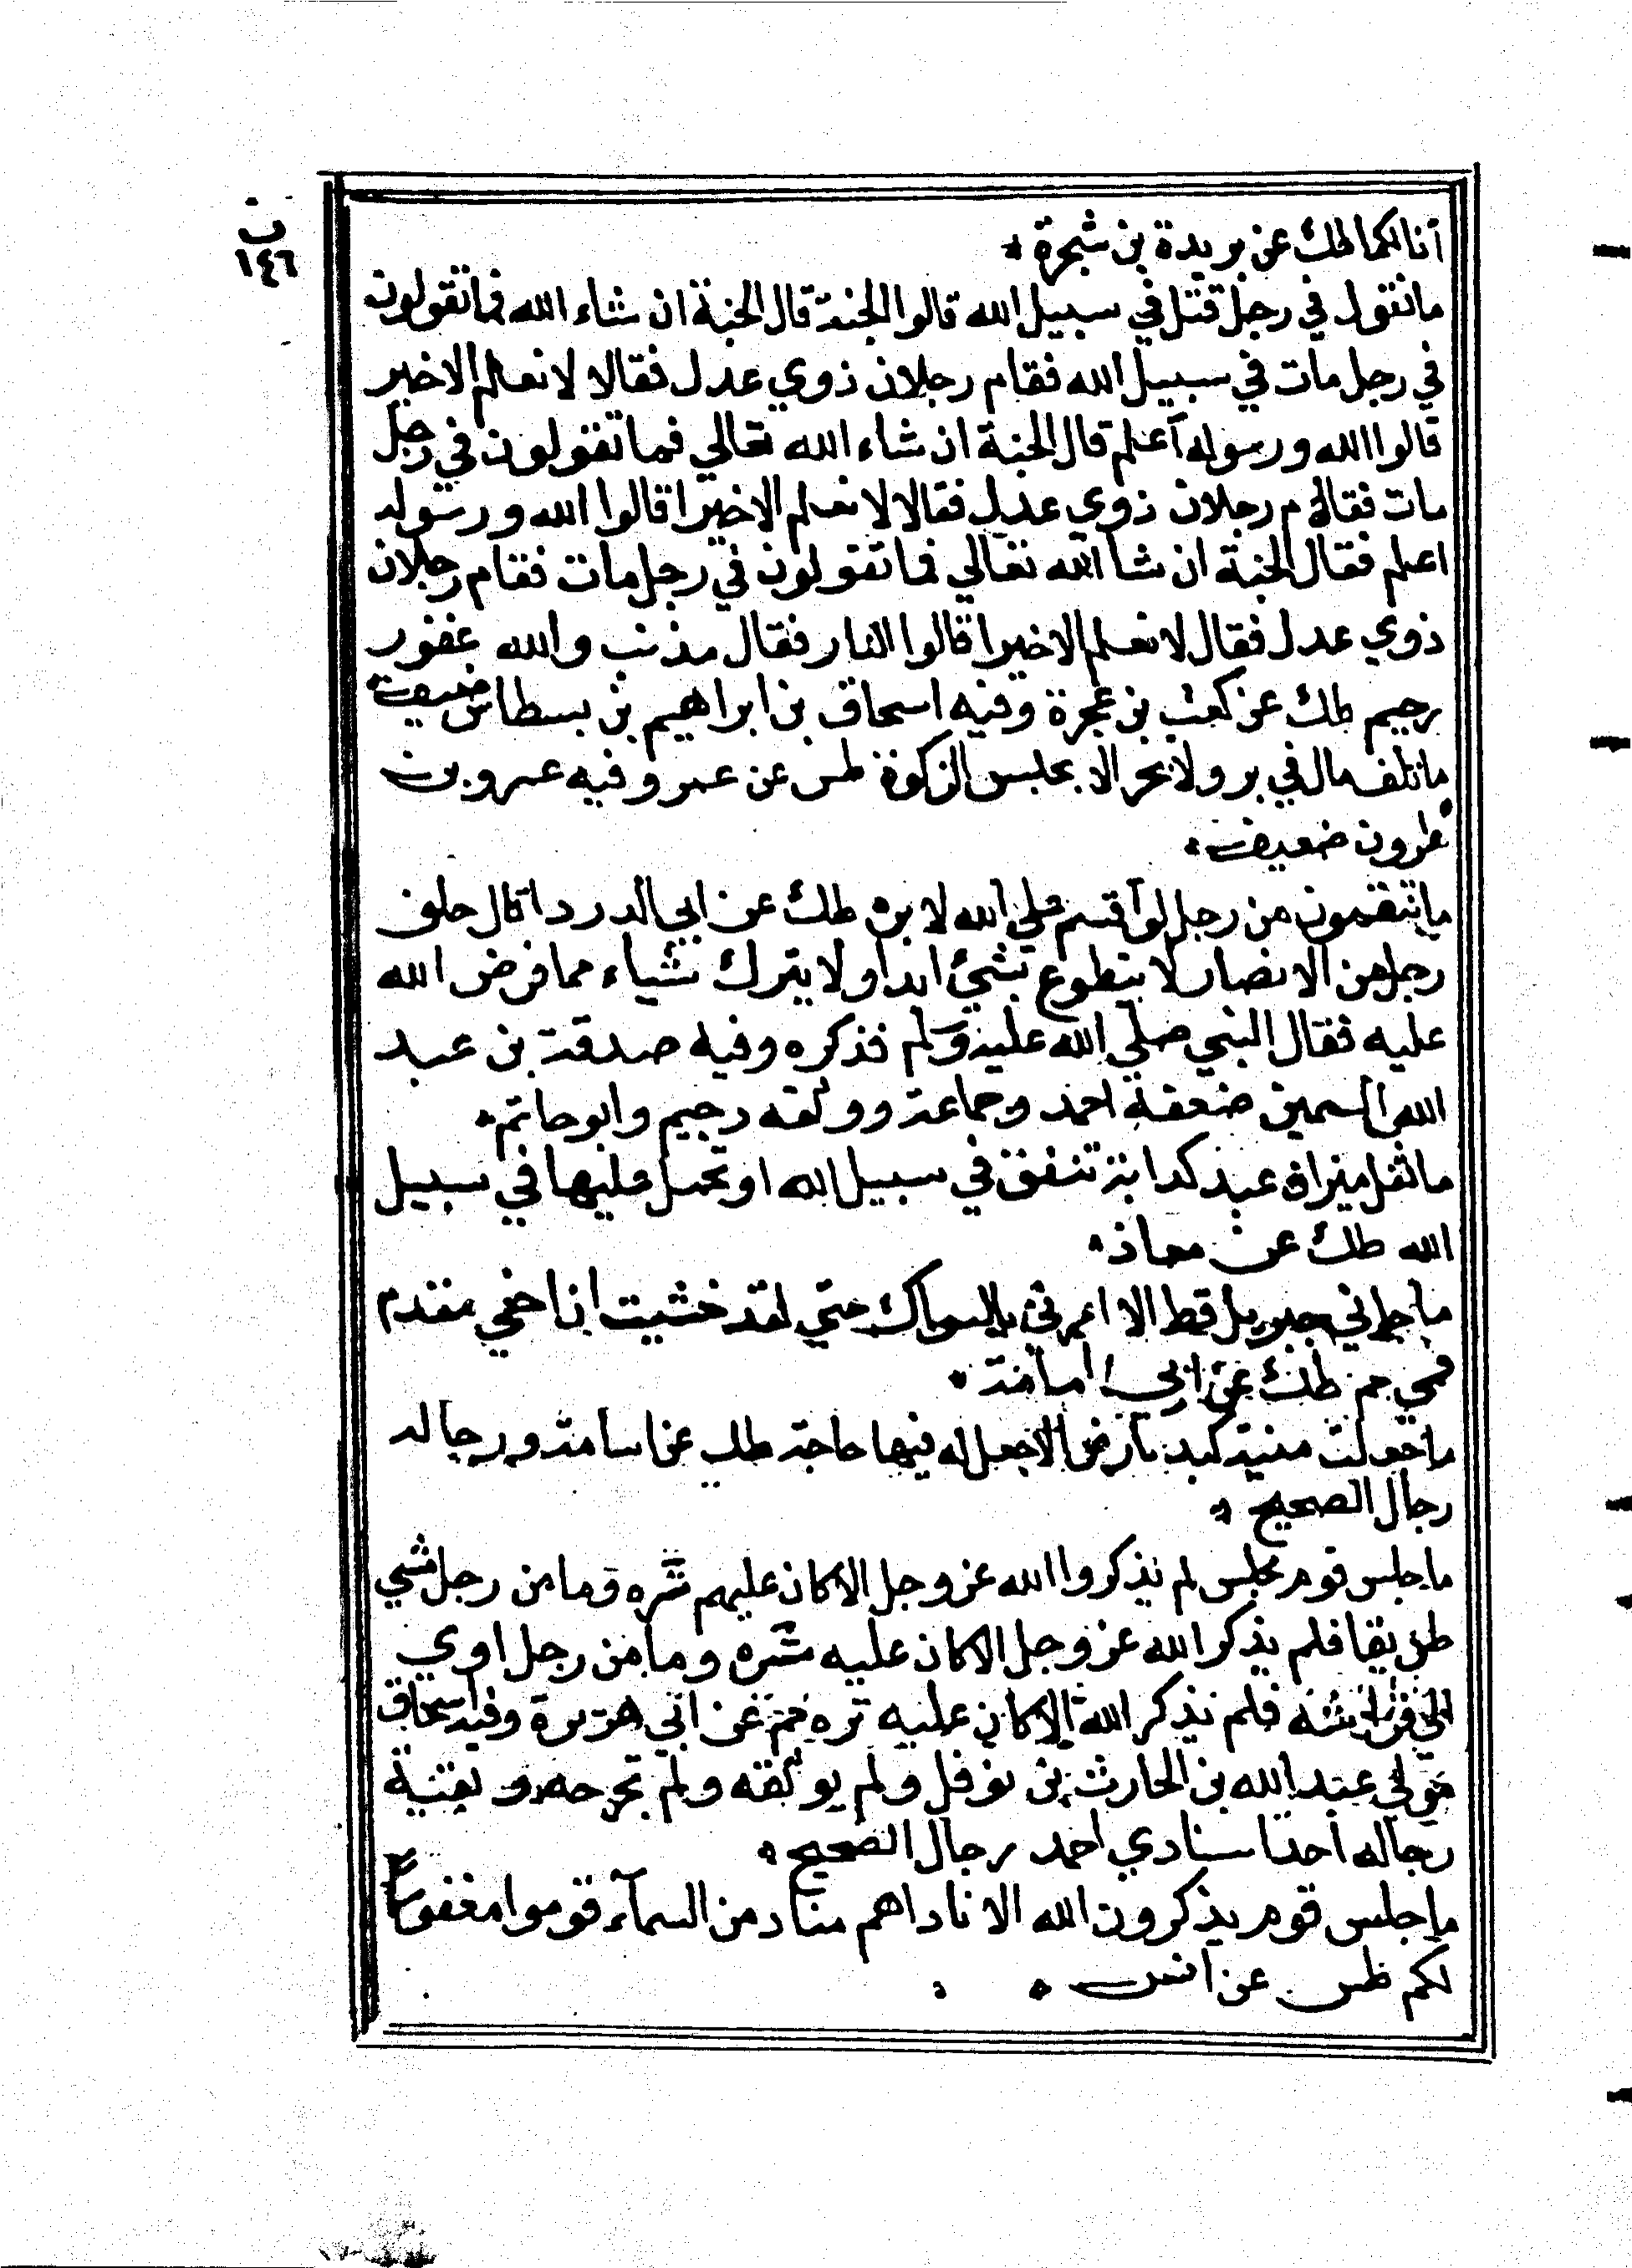 ق
١٤٦
آنا لكما طك عن بريدة بن شجرة
ما تقول في رجل قتل في سبيل الله قالوا الجنة قال الجنة ان شاء الله فما تقولون
في رجل مات في سبيل الله فقام رجلان ذوي عدل فقالا لا نعلم الاخير
قالوا الله ورسوله آعلم قال الجنة ان شاء الله تعالي فما تقولون في رجل
مات فقام رجلان ذوي عدل فقالا لا نعلم الاخيرا قالوا الله ورسوله
اعلم فقال الجنة ان شا الله تعالي فما تقولون في رجل مات فقام رجلان
ذوي عدل فقال لا نعلم الاخيرا قالوا النار فقال مذنب والله غفور
رحيم طك عن كعب بن عجرة وفيه اسحاق بن ابراهيم بن بسطاس ضعيف
ما تلف مال في بر ولا بحر الا بحبس الزكوة طس عن عمر وفيه عمرو بن
هارون ضعيف
ما تنقمون من رجل لو آقسم علي الله لابره طك عن ابي الدردا قال حلف
رجل من الانصار لا يتطوع بشيئ ابدا ولا يترك شياء مما فرض الله
عليه فقال النبي صلي الله عليه وسلم فذكره وفيه صدقة بن عبد
الله السمين ضعفه احمد وجماعة ووثقه دحيم وابو حاتم
ما ثقل ميزان عبد كدابة تنفق في سبيل الله او تحمل عليها في سبيل
الله طك عن معاذ
ما جاءني جبريل قط الا امرني بالسواك حتي لقد خشيت ان احفي مقدم
فمي حم طك عن ابي امامة
ما جعلت منية عبد بارض الا جعل له فيها حاجة طك عن اسامة ورجاله
رجال الصحيح
ما جلس قوم مجلس لم يذكروا الله عز وجل الا كان عليهم تره وما من رجل مشي
طريقا فلم يذكر الله عز وجل الا كان عليه تره وما من رجل اوي
الي فراشه فلم يذكر الله الا كان عليه تره حم عن ابي هريرة وفيه اسحاق
مولي عبد الله بن الحارث بن نوفل ولم يوثقه ولم يجرحه وبقية
رجاله احد اسنادي احمد رجال الصحيح
ما جلس قوم يذكرون الله الا ناداهم مناد من السمآء قوموا مغفورا
لكم طس عن انس